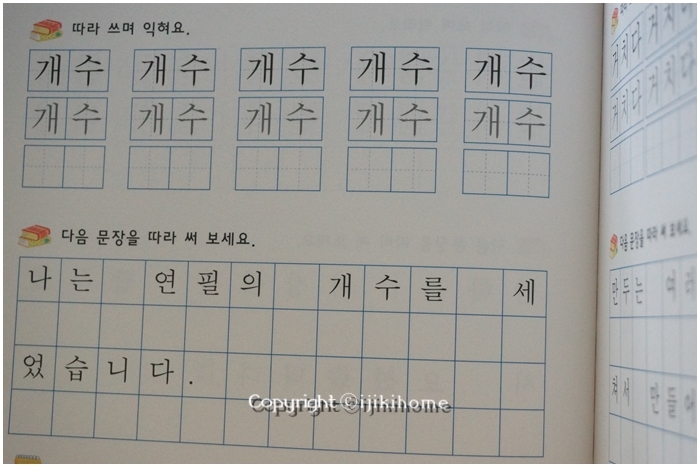 따라 쓰며 익혀요.
개수 개수 개수 개수 개수
개수 개수 개수 개수 개수
다음 문장을 따라 써 보세요.
나는 연필의 개수를 세
었습니다.
Copyright ⓒijikihome
거치다 거치다
거치다 거치다
다음 문장을 따라 써 보세요.
만두는 여러
쳐서 만들어